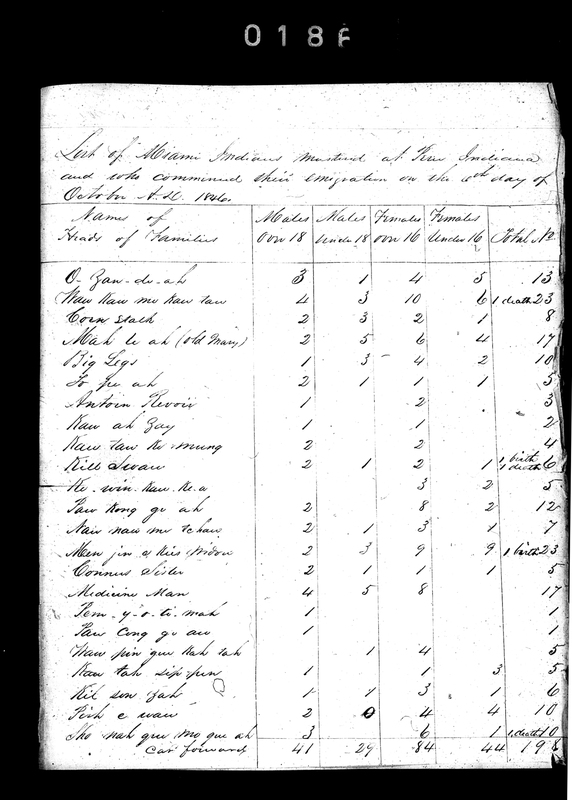 0186
List of Miami Indians mustered at Peru Indiana
and who commenced their emigration on the 6th day of
October A.D. 1846.
Names of Heads of Families Males over 18 Males under 18 Females over 16 Females Under 16 Total No
O-Zan-de-ah 3 1 4 5 13
Waw Kaw me Kaw taw 4 3 10 6 1 death 23
Corn Stalk 2 3 2 1 8
Mah le ah (Old Mary) 2 5 6 4 17
Big Legs 1 3 4 2 10
To pe ah 2 1 1 1 5
Antoin Revoir 1 2 3
Kaw ah Zay 1 1 2
Kaw taw Ke mung 2 2 4
Kill Swan 2 1 2 1 1 birth 1 death 6
Ke-win-Kaw-Ke-a 3 2 5
Paw Kong ge ah 2 8 2 12
Naw naw me tchaw 2 1 3 1 7
Men jin e Kies Widow 2 3 9 9 1 birth 23
Conners Sister 2 1 1 1 5
Medicine Man 4 5 8 17
Pem-y-o-ti-mah 1 1
Paw Cong ge aw 1 1
Waw pin gue Kah tah 1 4 5
Kaw tah sip pen 1 1 3 5
Kil son Zah 1 1 3 1 6
Pish e waw 2 0 4 4 10
Sho nah gue mo que ah 3 6 1 1 death 10
Car forward 41 29 84 44 198